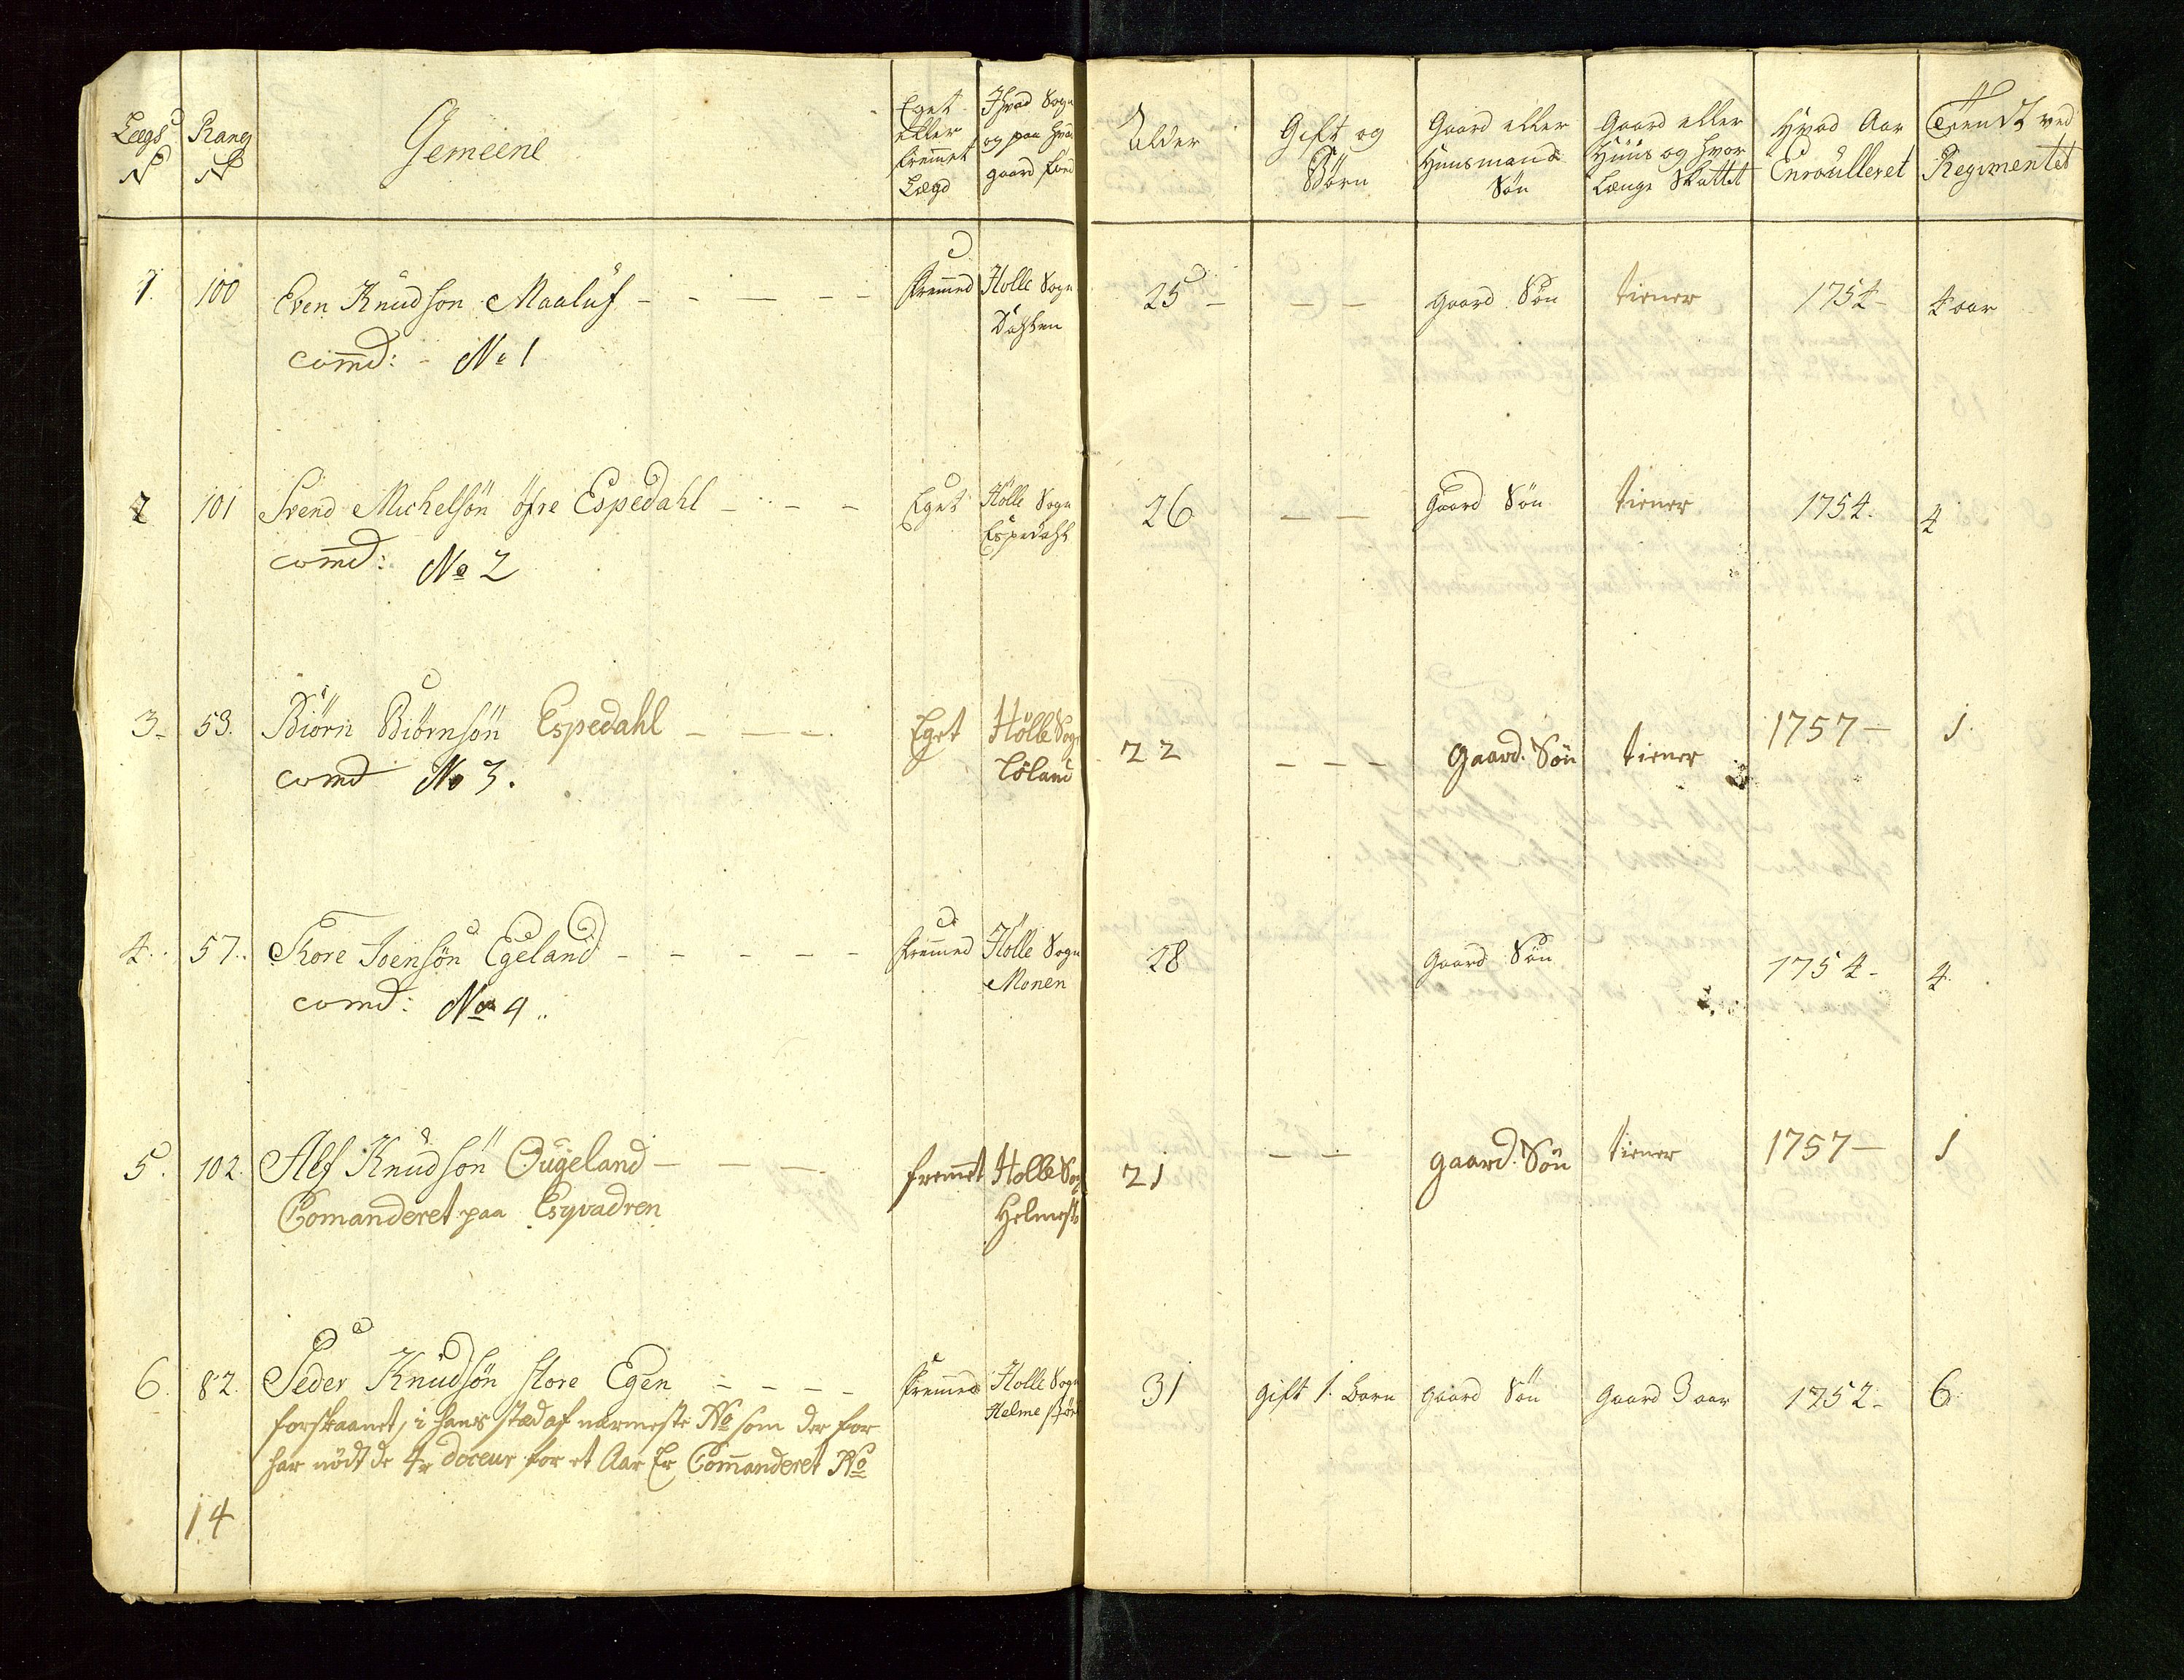 Lægs No
Rang No
Gemeene
Eget eller fremmet Lægd
I hvad Sogn og paa hvad gaard föd
Alder
Gift og Börn
Gaard eller Huusmands Sön
Gaard eller Huus og hvor Længe Skattet
Hvad Aar Enroulleret
Tient ved Regimentet
1. 100 Even Knudson Maaluf - - - - - Fremed Holle Sogn 25 - - - gaard Sön tiener 1754 - 4 aar
comd: - No 1
2 101 Svend Michelsön öfre Espedahl - - - Eget Holle Sogn Espedahl 26 - - Gaard Sön tiener 1754. 4
comd: No 2
3. 53. Biörn Biörnsön Espedahl - - - Eget Hölle Sogn Löland 22 - - - gaard. Sön tiener 1757 - 1.
comd No 3.
4. 57. Tore Joensön Egeland - - - - - Fremed Holle Sogn Monen 28 Gaard Sön 1754 - 4.
comd: No 4.
5. 102. Alf Knudsön Ougeland - - - fremet Holle Sogn 21 - - gaard. Sön tiener 1757 - 1
Comanderet paa Esqvadren
6. 82. Peder Knudsön store Egen - - - - Fremed Holle Sogn 31 gift 1. Barn gaard Sön Gaard 3 aar 1752 - 6
forskaanet, i hans stad af nærmeste No som der for
har nödt de 4r doceur for et Aar Er Commanderet No
14